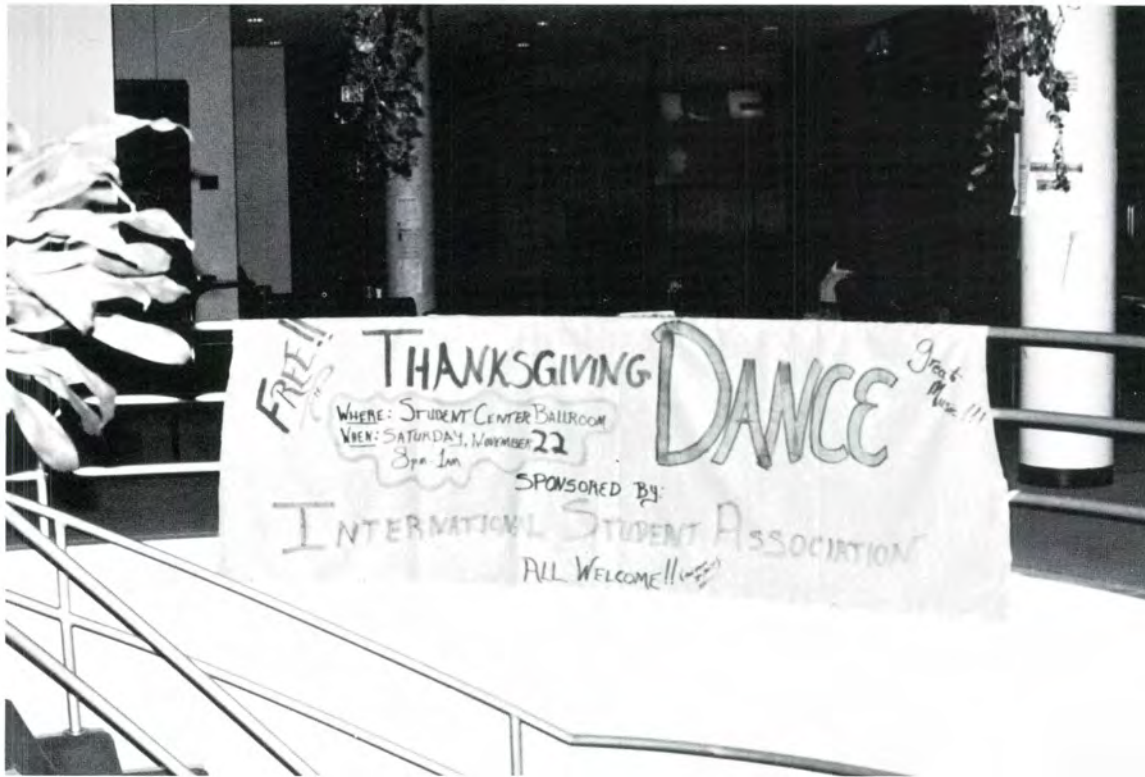 FREE!!
THANKSGIVING DANCE
great
Music!!!
WHERE: STUDENT CENTER BALLROOM
WHEN: SATURDAY, NOVEMBER 22
8pm-1am
SPONSORED By:
INTERNATIONAL STUDENT ASSOCIATION
ALL WELCOME!!